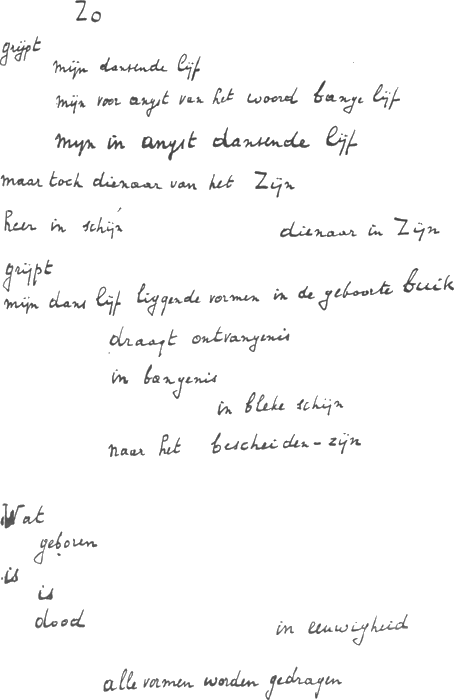 Zo
grijpt
mijn dansende lijf
mijn voor angst van het woord bange lijf
mijn in angst dansende lijf
maar toch dienaar van het Zijn
heer in schijn dienaar in Zijn
grijpt
mijn dans lijf liggende vormen in de geboorte buik
draagt ontvangenis
in bangenis
in bleke schijn
naar het bescheiden-zijn
Wat
geboren
is
is
dood
in eeuwigheid
alle vormen worden gedragen